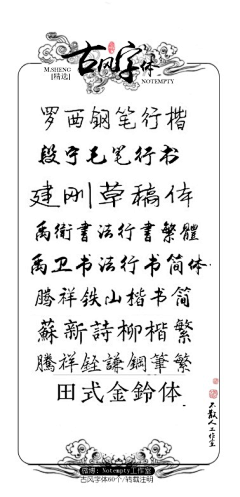 M.SHENG
[精选]
古风字体
NOTEMPTY
罗西钢笔行楷
段宁毛笔行书
建刚草稿体
禹衛書法行書繁體
禹卫书法行书简体
腾祥铁山楷书简
蘇新詩柳楷繁
騰祥鉄謙鋼筆繁
田式金鈴体
不散人工作室
微博：Notempty工作室
古风字体60个/转载注明